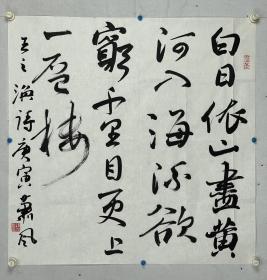 白日依山盡黄
河入海流欲
窮千里目更上
一层楼
王之涣诗庚寅肅风